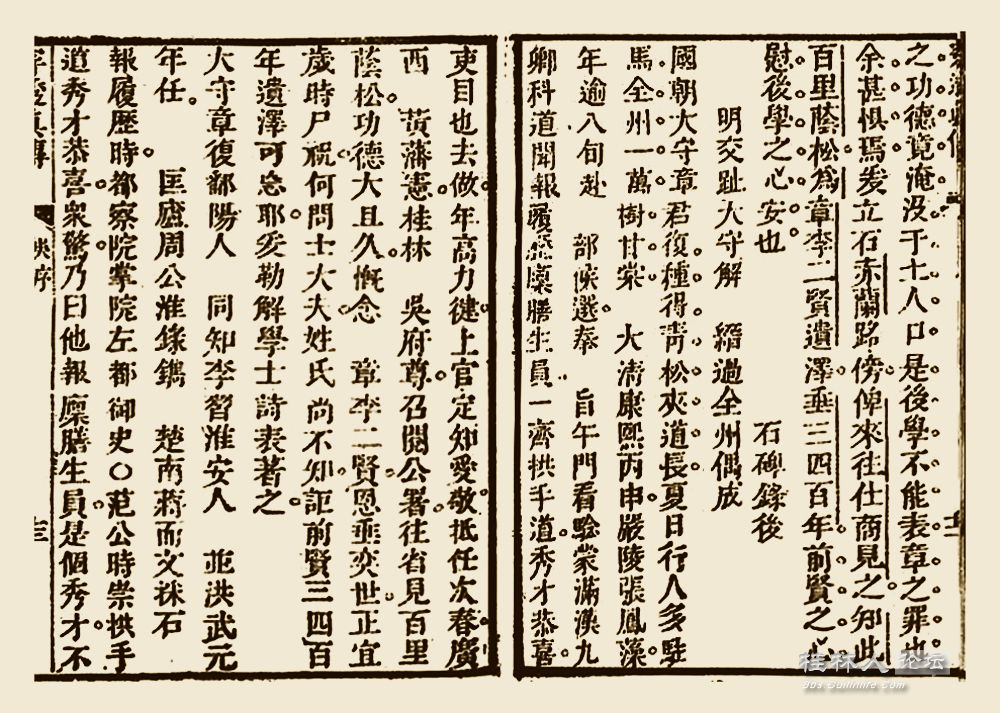 之功德竟淹没于士人口是後學不能表章之罪也
余甚惧焉爰立石赤蘭路傍俾來徃仕商見之知此
百里蔭松爲章李二賢遺澤垂三四百年前賢之心
慰後學之心安也 石碑錄後
明交趾大守解 縉過全州偶成
國朝大守章君復種得靑松夾道長夏日行人多駐
馬全州一萬樹甘棠 大淸康熙丙申嚴陵張鳳藻
年逾八旬赴 部候選奉 旨午門看驗蒙滿漢九
卿科道聞報履歷廩膳生員一齊拱手道秀才恭喜
吏目也去做年高力徤上官定知愛敬抵任次春廣
西 黃藩憲桂林 吳府尊召閱公署徃省見百里
蔭松功德大且久慨念 章李二賢恩垂奕世正宜
歲時尸祝何問士大夫姓氏尚不知詎前賢三四百
年遺澤可忘耶爰勒解學士詩表著之
大守章復鄱陽人 同知李習淮安人 並洪武元
年任 匡廬周公淮錄鐫 楚南蔣而文抹石
報履歷時都察院掌院左都御史○范公時崇拱手
道秀才恭喜衆驚乃曰他報廩膳生員是個秀才不
十三
桂林人论坛
bbs.guilinlife.com